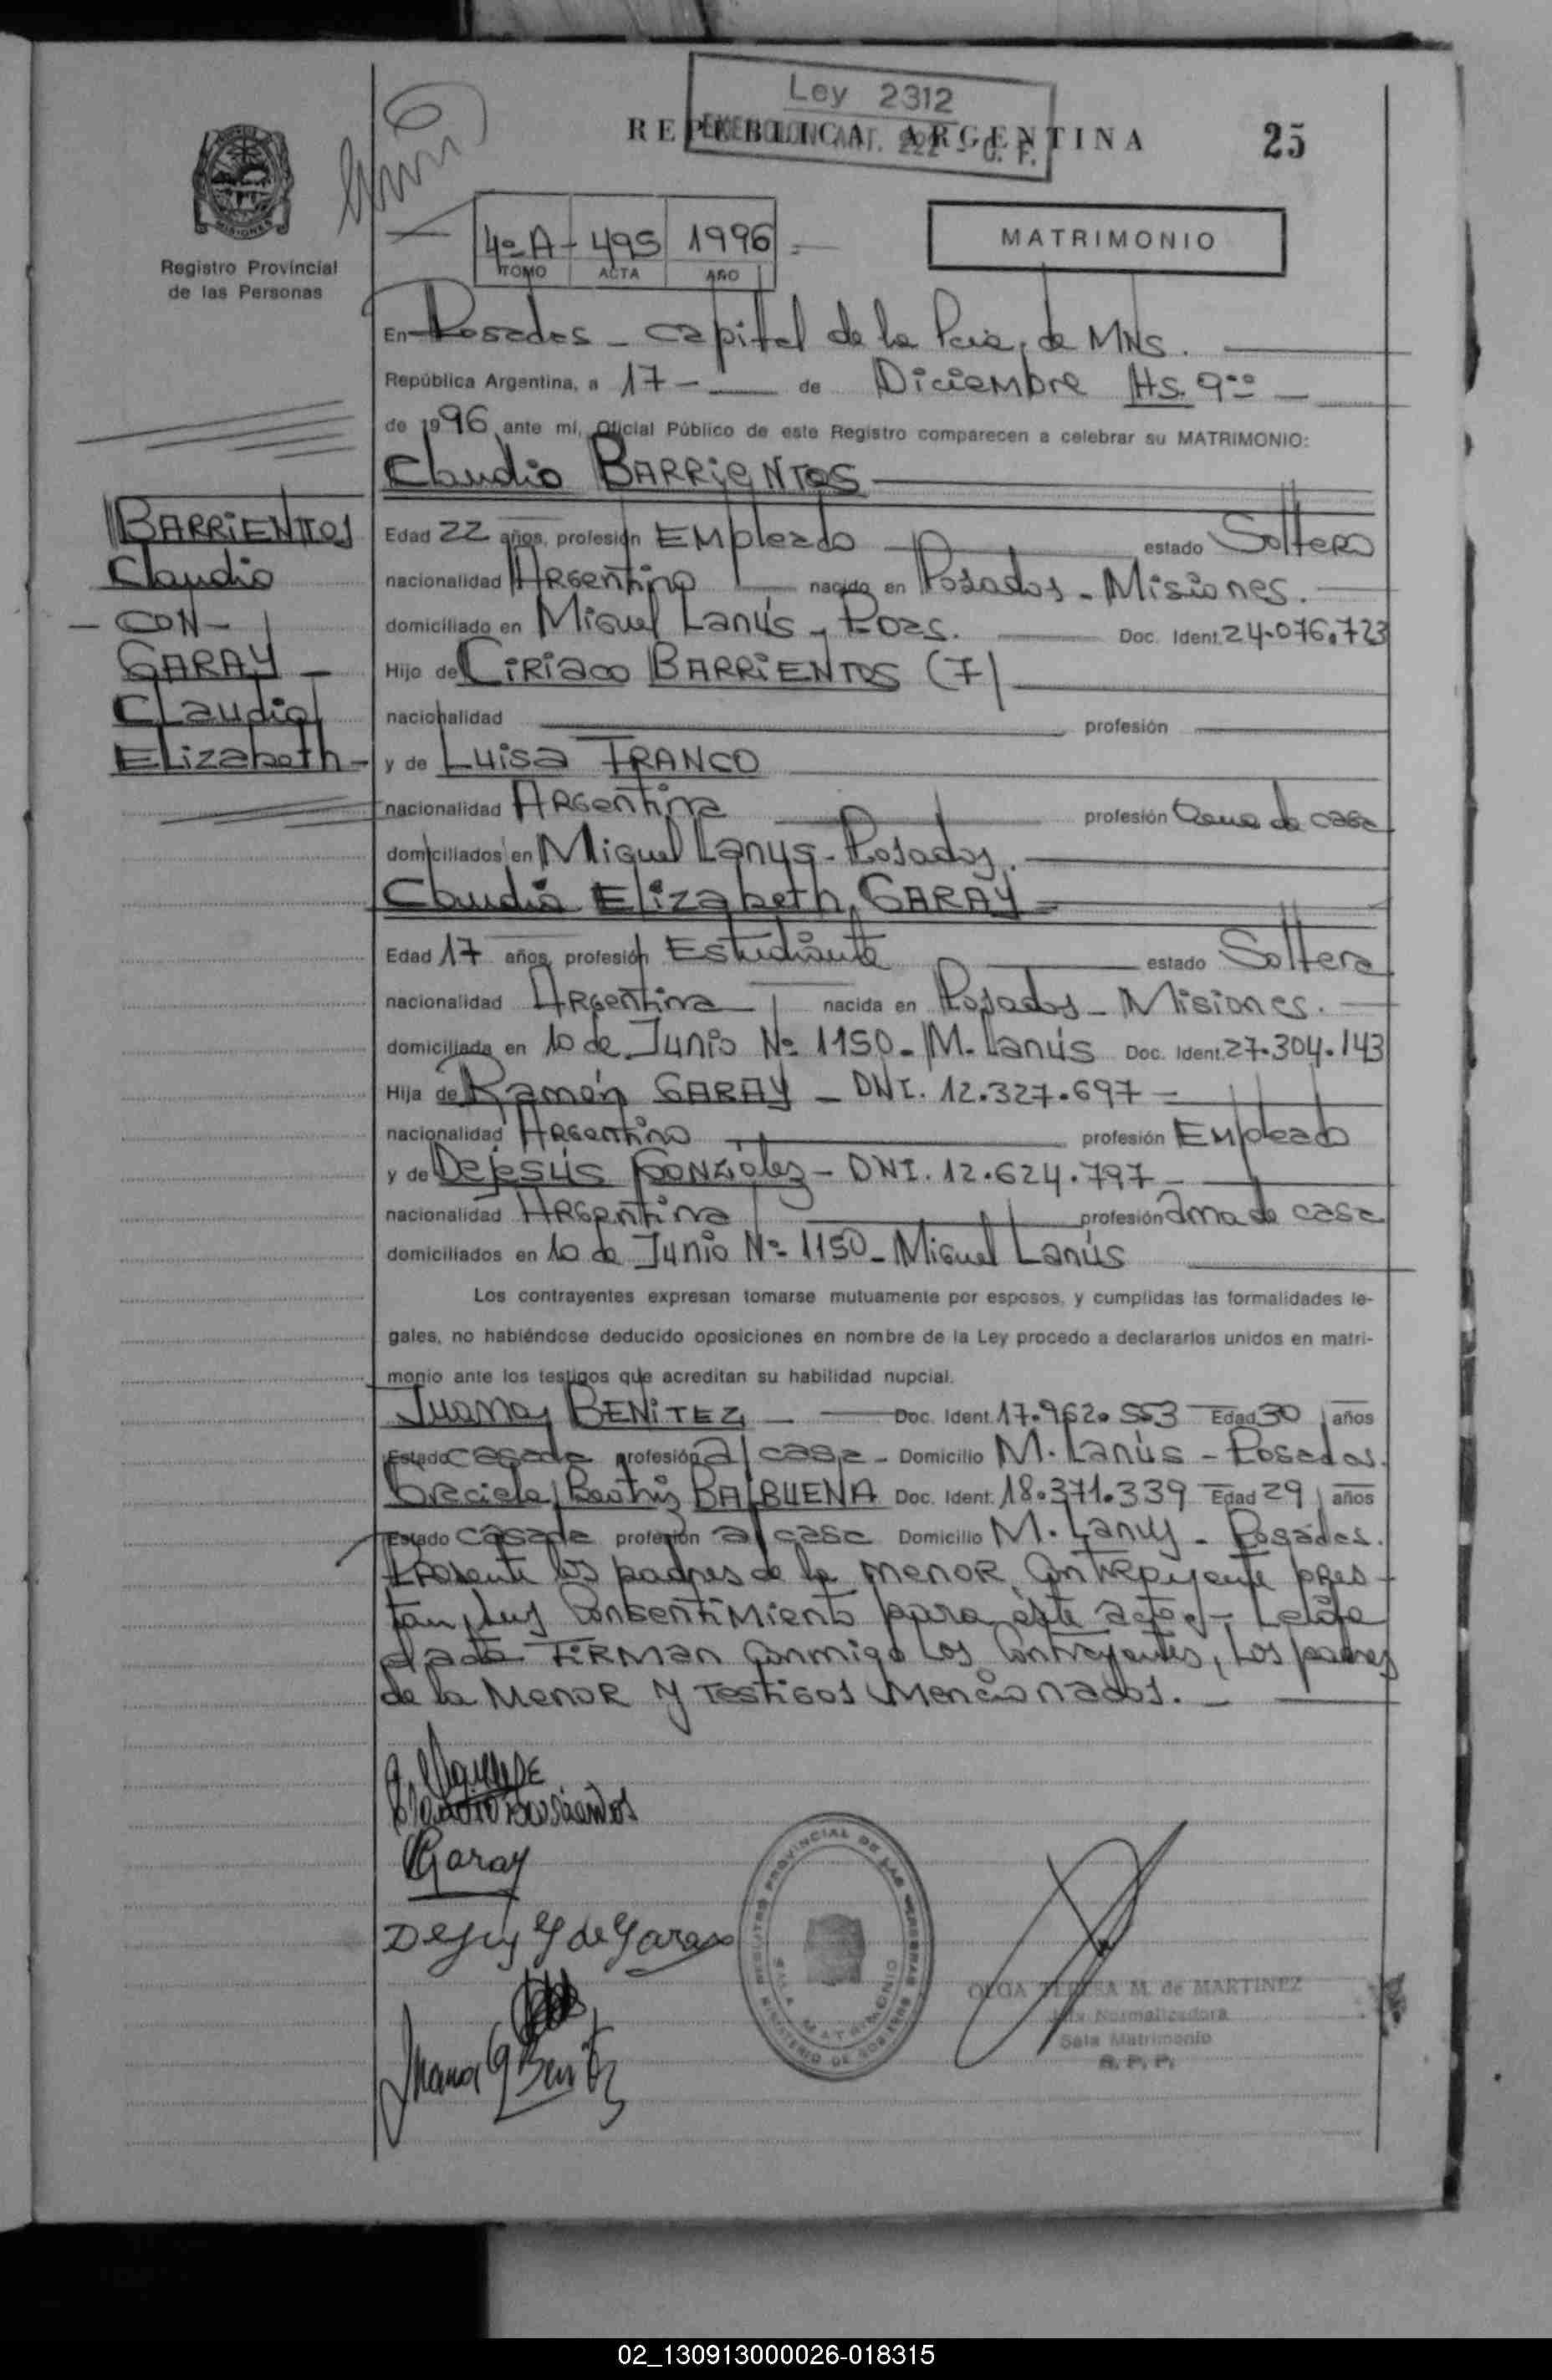 Ley 2312
REPUBLICA ARGENTINA
25
4º A - 495 1996
TOMO ACTA AÑO
MATRIMONIO
MISIONES
Registro Provincial
de las Personas
En Posadas - Capital de la Pcia. de MNS.
República Argentina, a 17 - de Diciembre Hs. 9:00
de 1996 ante mí, Oficial Público de este Registro comparecen a celebrar su MATRIMONIO:
Claudio BARRIENTOS
BARRIENTOS
Claudio
- CON -
GARAY
Claudia
Elizabeth -
Edad 22 años, profesión Empleado estado Soltero
nacionalidad Argentino nacido en Posadas - Misiones.
domiciliado en Miguel Lanús - Pdas. Doc. Ident. 24.076.723
Hijo de Ciriaco BARRIENTOS (F)
nacionalidad profesión
y de Luisa FRANCO
nacionalidad Argentina profesión ama de casa
domiciliados en Miguel Lanús - Posadas.
Claudia Elizabeth GARAY
Edad 17 años, profesión Estudiante estado Soltera
nacionalidad Argentina nacida en Posadas - Misiones.
domiciliada en 10 de Junio Nº 1150 - M. Lanús Doc. Ident. 27.304.143
Hija de Ramón GARAY - DNI. 12.327.697
nacionalidad Argentino profesión Empleado
y de Dejesús González - DNI. 12.624.797
nacionalidad Argentina profesión ama de casa
domiciliados en 10 de Junio Nº 1150 - Miguel Lanús
Los contrayentes expresan tomarse mutuamente por esposos, y cumplidas las formalidades le-
gales, no habiéndose deducido oposiciones en nombre de la Ley procedo a declararlos unidos en matri-
monio ante los testigos que acreditan su habilidad nupcial.
Juana BENITEZ Doc. Ident. 17.962.553 Edad 30 años
Estado casada profesión a/casa - Domicilio M. Lanús - Posadas.
Graciela Beatriz BALBUENA Doc. Ident. 18.371.339 Edad 29 años
Estado casada profesión a/casa Domicilio M. Lanús - Posadas.
Presente los padres de la menor contrayente pres-
tan sus consentimiento para éste acto. - Leída
el acta firman conmigo los contrayentes, los padres
de la menor y testigos mencionados. -
Claudio Barrientos
Garay
Dejesús G de Garay
Juana G Benitez
REGISTRO PROVINCIAL DE LAS PERSONAS
SALA MATRIMONIO
MINISTERIO DE GOBIERNO
OLGA TERESA M. de MARTINEZ
Normalizadora
Sala Matrimonio
R. P. P.
02_130913000026-018315